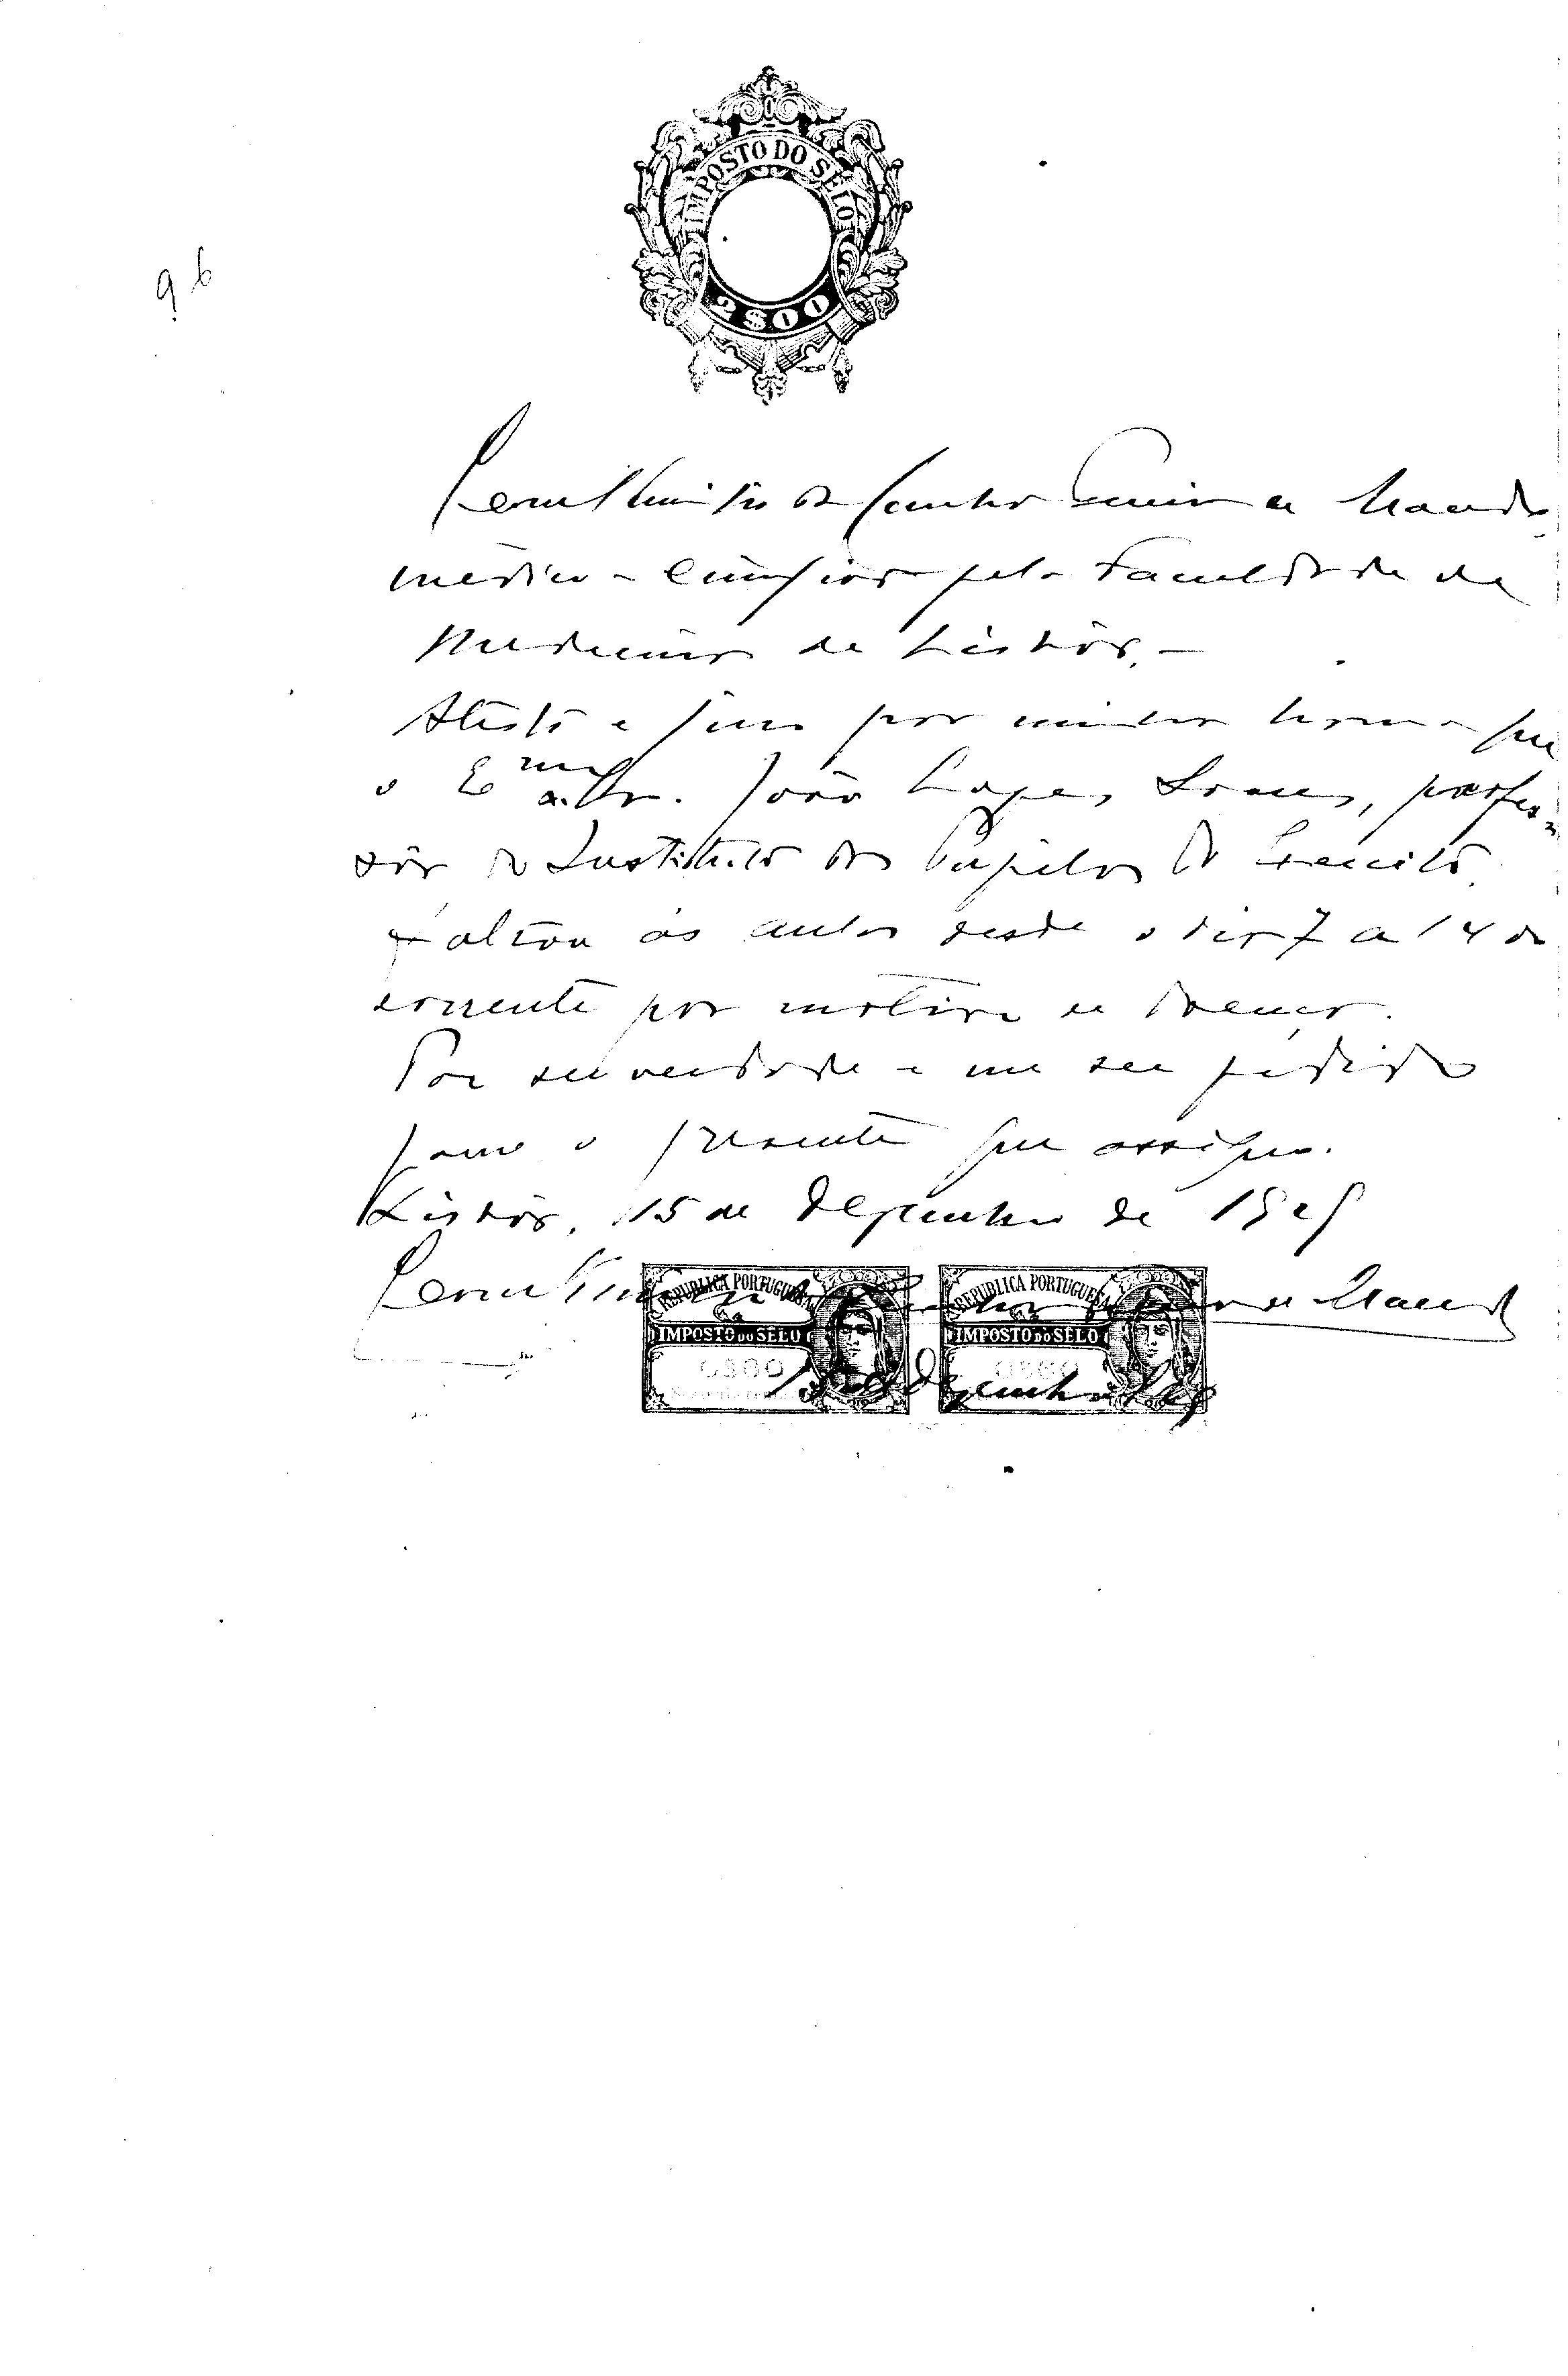 IMPOSTO DO SELO
2$00
96
médico-cirurgião pela Faculdade de
Medicina de Lisbôa.
Atesto e juro por minha honra que
o Exmo Sr. João Lopes Soares, profes-
sôr do Instituto dos Pupilos do Exercito
faltou ás aulas desde o dia 7 a 14 do
corrente por motivo de doença.
Por ser verdade e me ser pedido
passo o presente que assigno.
Lisbôa, 15 de Dezembro de
REPUBLICA PORTUGUESA REPUBLICA PORTUGUESA
IMPOSTO DO SELO IMPOSTO DO SELO
Dezembro